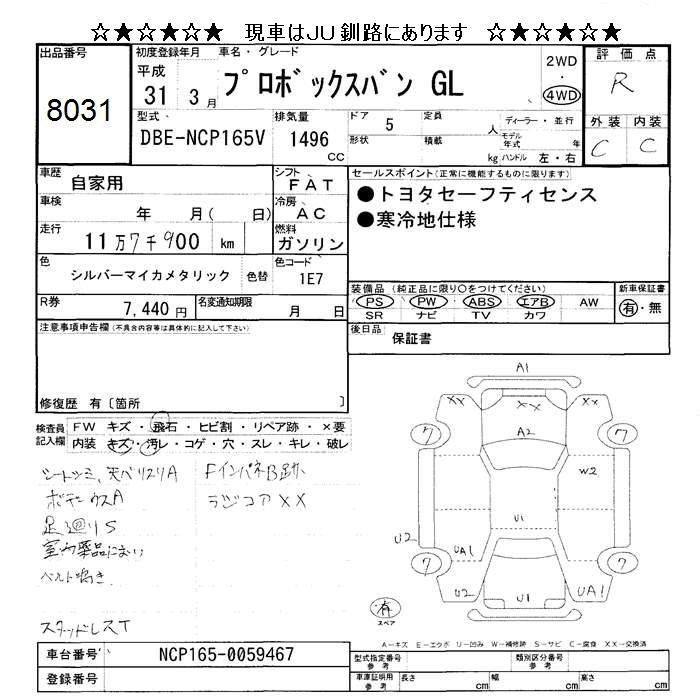 ☆★☆★☆ 現車はJU釧路にあります ☆★☆★☆
出品番号 初度登録年月 車名・グレード 評価点
8031 平成 31年 3月 プロボックスバン GL 2WD・4WD R
型式 排気量 ドア 定員 ディーラー・並行 外装 内装
DBE-NCP165V 1496 CC 5 人 モデル年式 年 C C
形状 積載 kg ハンドル 左・右
車歴 自家用 シフト FAT セールスポイント(正常に機能するものに限ります)
車検 年 月( 日) 冷房 AC ●トヨタセーフティセンス
走行 11万7千900 km 燃料 ガソリン ●寒冷地仕様
色 シルバーマイカメタリック 色替 色コード 1E7
装備品(純正品に限り○をつけてください) 新車保証書
R券 7,440円 名変通知期限 月 日 PS PW ABS エアB AW 有・無
SR ナビ TV カワ
注意事項申告欄(不具合内容等は具体的に記入して下さい) 後日品 保証書
修復歴 有〔箇所 〕
検査員記入欄 FW キズ・飛石・ヒビ割・リペア跡・×要
内装 キズ・汚レ・コゲ・穴・スレ・キレ・破レ
シートシミ、天ベリスリA FインパネB跡
ボデーウスA ラジコアXX
足廻りS
室内薬品におい
ベルト鳴き
スタッドレスT
A1
XX XX XX
7 A2 7
W2
U1
U2 UA1
7 7
U2 U1 UA1
有
スペア
A-キズ E-エクボ U-凹み W-補修跡 S-サビ C-腐食 XX-交換済
車台番号 NCP165-0059467 型式指定番号 参考 類別区分番号 参考
登録番号 車庫証明用 参考 長さ cm 幅 cm 高さ cm